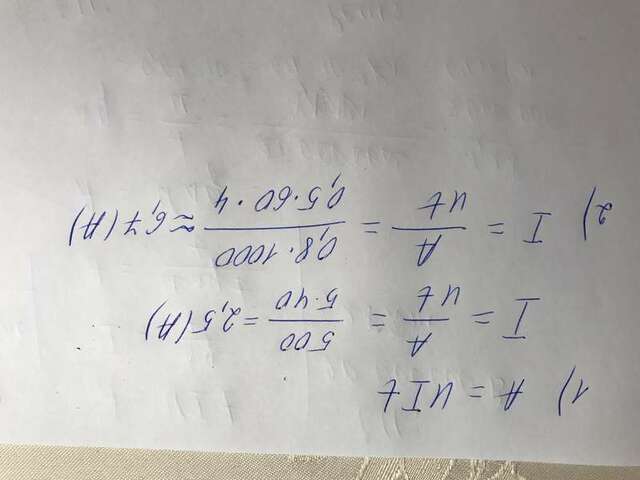 1) A = UIt
I = A/Ut = 500/5·40 = 2,5 (A)
2) I = A/Ut = 0,8·1000/0,5·60·4 ≈ 6,7 (A)